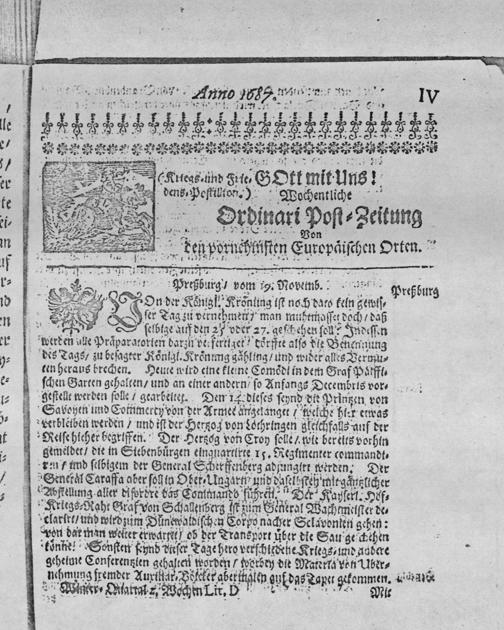 Anno 1687.
IV
(Kriegs- und Frie-
dens-Postillion.)
GOtt mit Uns!
Wochentliche
Ordinari Post-Zeitung
Von
den vornehmsten Europäischen Orten.
Preßburg / vom 19. Novemb.
Preßburg
VOn der Königl. Krönung ist noch dato kein gewis-
ser Tag zu vernehmen / man muhtmasset doch / daß
selbige auf den 25 oder 27. geschehen soll: Indessen
werden alle Präparatorien darzu verfertiget / dörffte also die Benennung
des Tags / zu besagter Königl. Krönung gähling / und wider alles Vermu-
ten heraus brechen. Heute wird eine kleine Comödi in dem Graf Palffi-
schen Garten gehalten / und an einer andern / so Anfangs Decembris vor-
gestellt werden solle / gearbeitet. Den 14. dieses seynd die Prinzen von
Savoyen und Commercy von der Armee angelanget / welche hier etwas
verbleiben werden / und ist der Hertzog von Lothringen gleichfalls auf der
Reise hieher begriffen. Der Hertzog von Croy solle / wie bereits vorhin
gemeldet / die in Siebenbürgen einquartirte 15. Regimenter commandi-
ren / und selbigem der General Scherffenberg adjungirt werden. Der
General Caraffa aber soll in Ober-Ungarn und daselbsten mit gäntzlicher
Abstellung aller disordre das Commando führen. Der Kayserl. Hof-
Kriegs-Raht Graf von Schallenberg ist zum General Wachtmeister de-
clarirt / und wird zum Dünewaldischen Corpo nacher Sclavonien gehen:
von dar man weiter erwartet / ob der Transport über die Sau geschehen
könne. Sonsten seynd dieser Tage hero verschiedene Kriegs- und andere
geheime Conferentien gehalten worden / worbey die Materia von Uber-
nehmung fremder Auxiliar-Völcker abermalen auf das Tapet gekommen.
Winter-Quartal 2, Wochen Lit. D
Mit